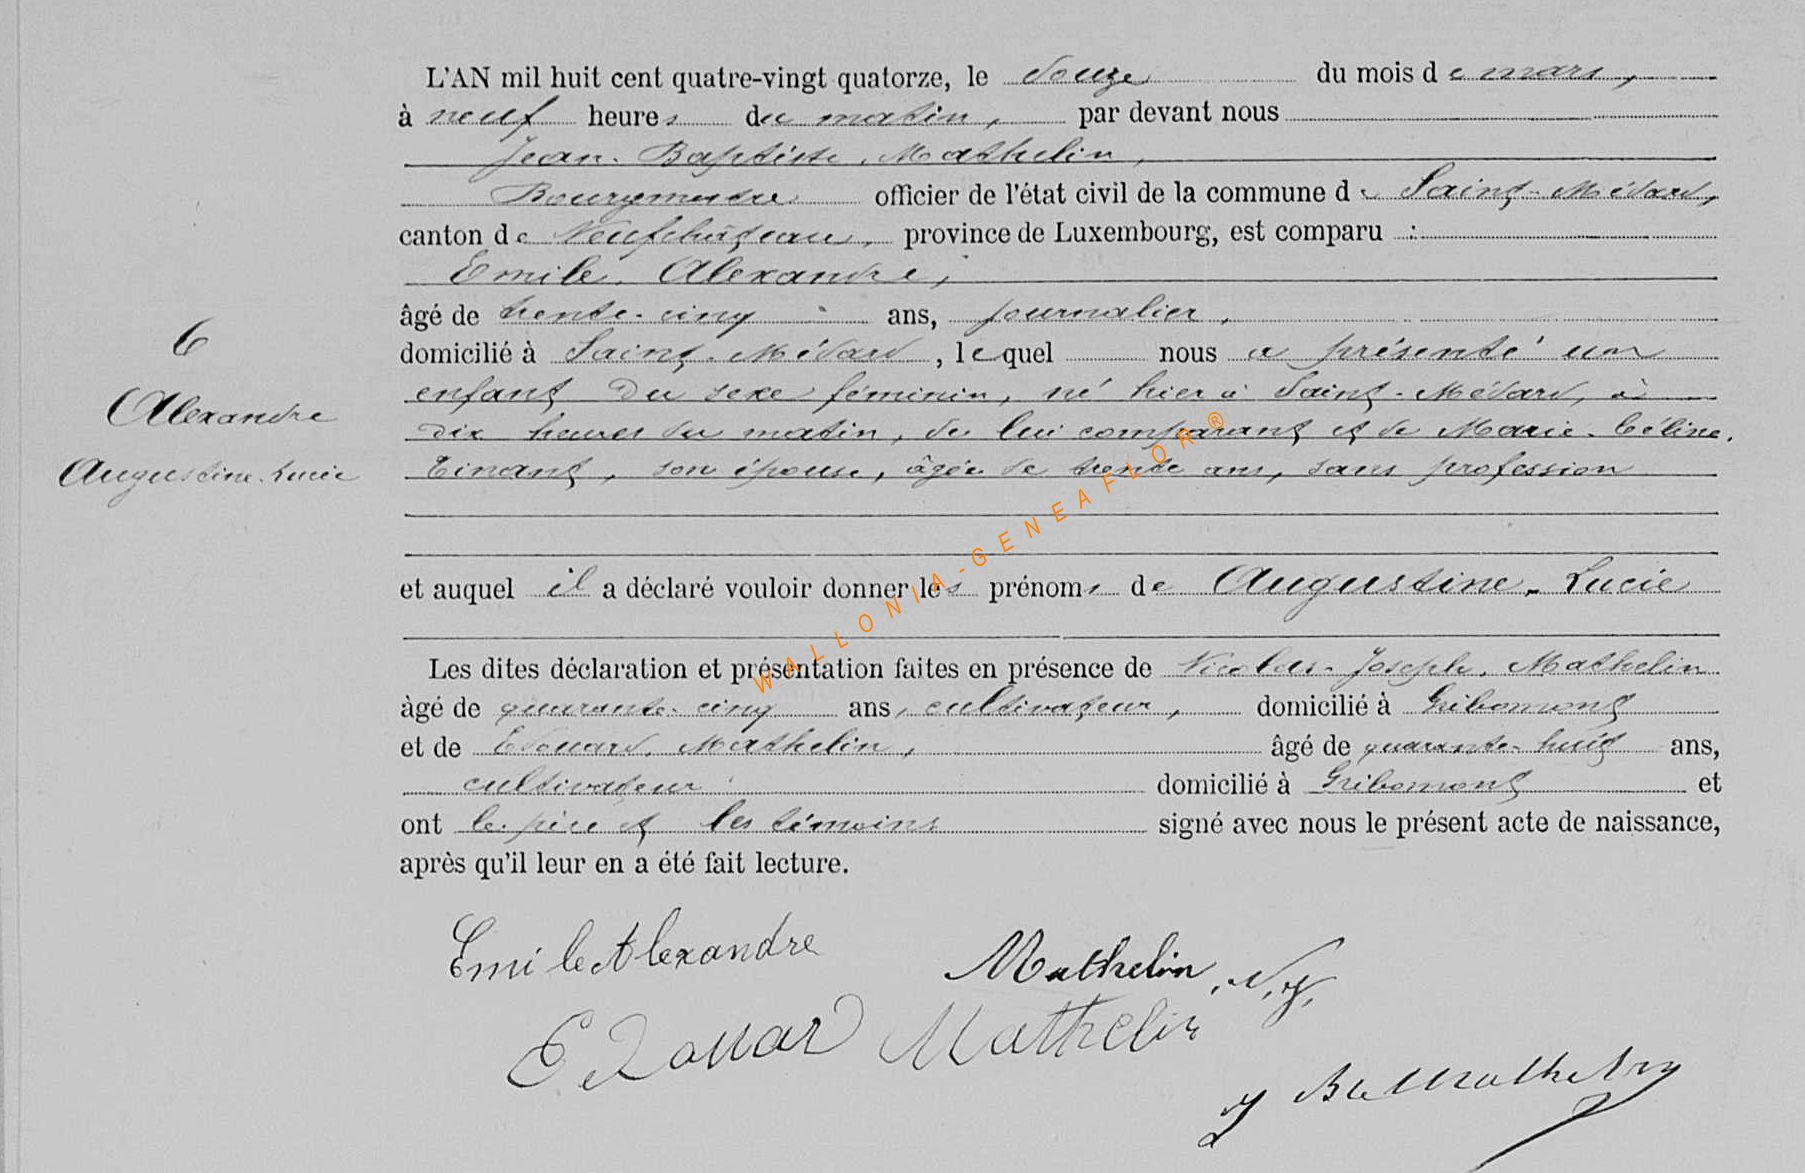 L'AN mil huit cent quatre-vingt quatorze, le douze du mois de mars,
à neuf heures du matin, par devant nous
Jean-Baptiste Mathelin,
Bourgmestre officier de l'état civil de la commune de Saint-Médard,
canton de Neufchâteau, province de Luxembourg, est comparu :
Emile Alexandre,
âgé de trente-cinq ans, journalier,
6
domicilié à Saint-Médard, lequel nous a présenté un
enfant du sexe féminin, né hier à Saint-Médard, à
Alexandre
dix heures du matin, de lui comparant et de Marie-Céline
Augustine-Lucie
Tinant, son épouse, âgée de trente ans, sans profession
et auquel il a déclaré vouloir donner les prénoms de Augustine-Lucie
Les dites déclaration et présentation faites en présence de Nicolas-Joseph Mathelin
àgé de quarante-cinq ans, cultivateur, domicilié à Gribomont
et de Edouard Mathelin, âgé de quarante-huit ans,
cultivateur domicilié à Gribomont et
ont le père et les témoins signé avec nous le présent acte de naissance,
après qu'il leur en a été fait lecture.
WALLONIA-GENEAFLOR®
Emile Alexandre
Mathelin, N. J.
Edouard Mathelin
J Bte Mathelin